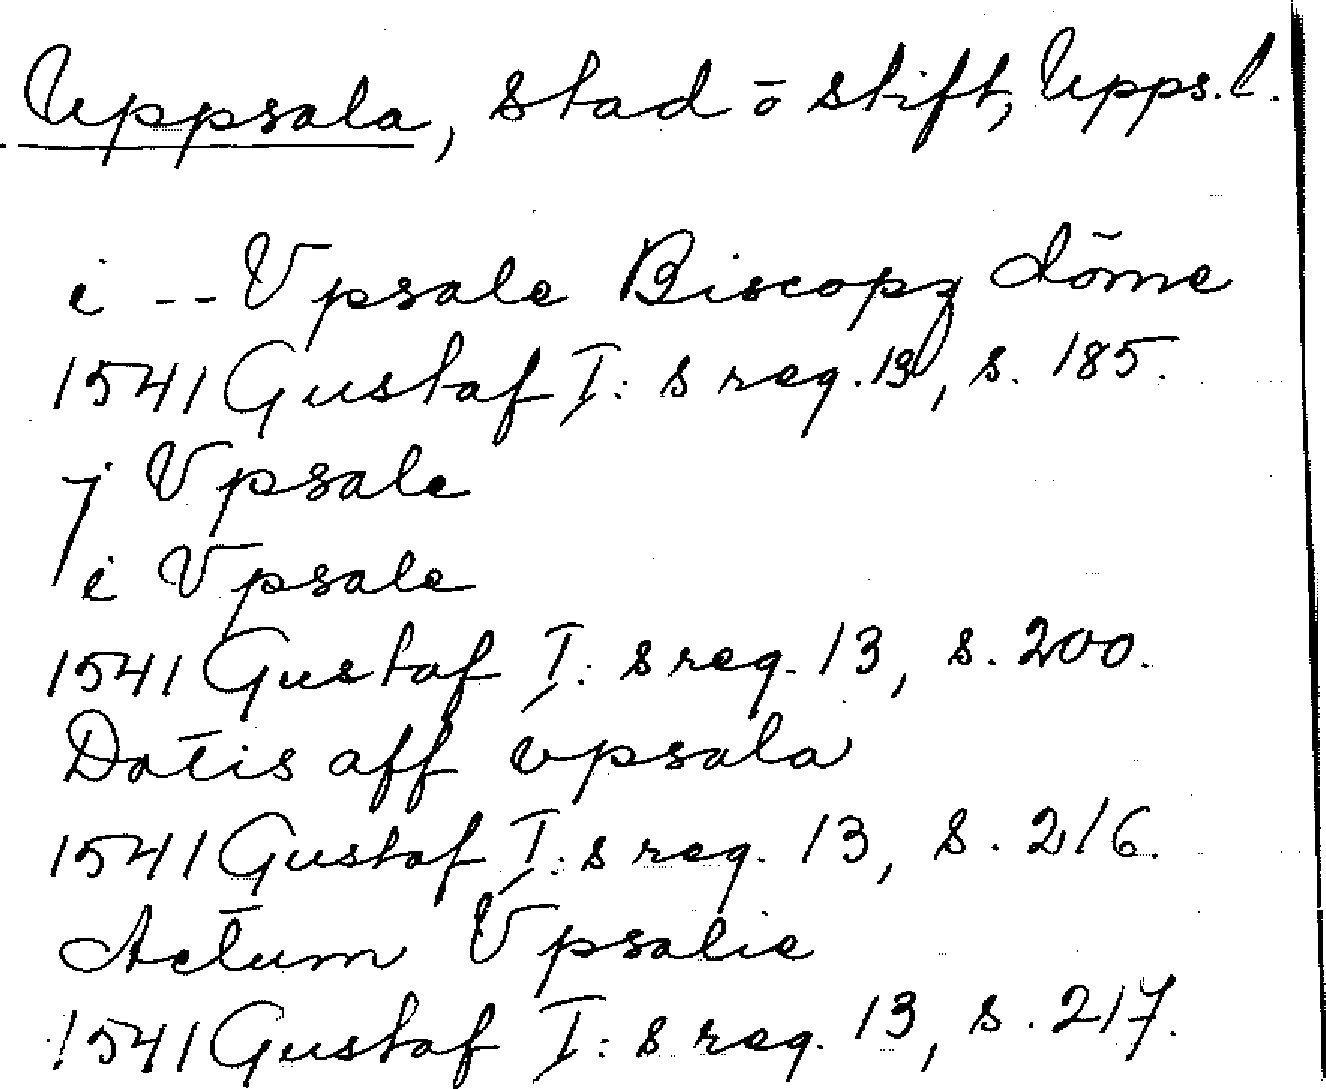 Uppsala, stad o stift, Upps. l.
i -- Vpsale Biscopz döme
1541 Gustaf I: s reg. 13, s. 185.
j Vpsale
i Vpsale
1541 Gustaf I: s reg. 13, s. 200.
Datis aff vpsala
1541 Gustaf I: s reg. 13, s. 216.
Actum Vpsalie
1541 Gustaf I: s reg. 13, s. 217.